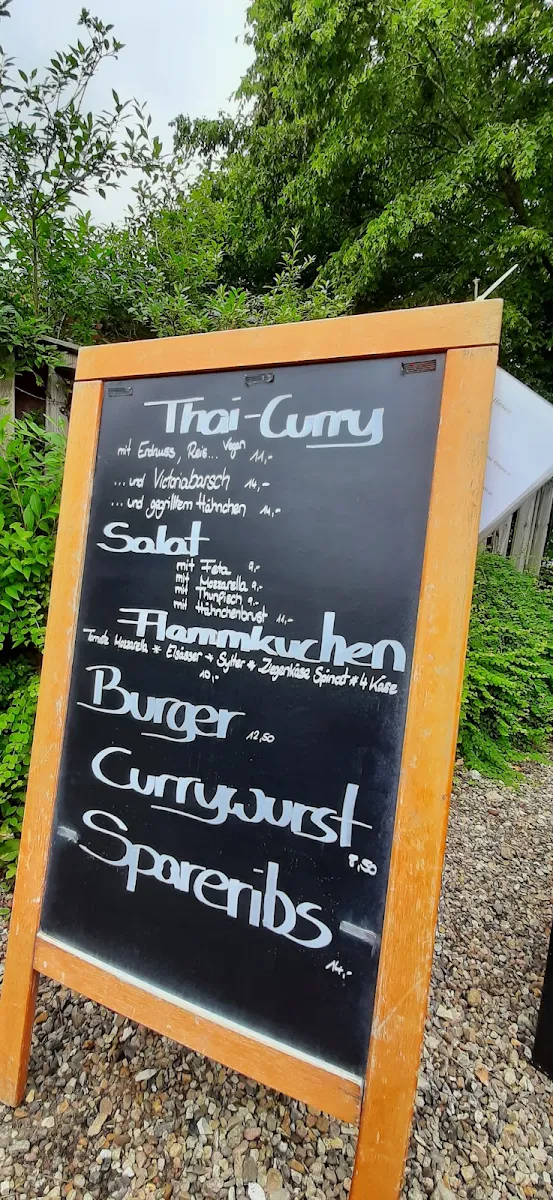 Thai-Curry
mit Erdnuss, Reis... vegan 11,-
... und Victoriabarsch 14,-
... und gegrilltem Hähnchen 14,-
Salat
mit Feta 9,-
mit Mozzarella 9,-
mit Thunfisch 9,-
mit Hähnchenbrust 11,-
Flammkuchen
Tomate Mozzarella * Elsässer * Sylter * Ziegenkäse Spinat * 4 Käse
10,-
Burger 12,50
Currywurst
8,50
Spareribs
14,-